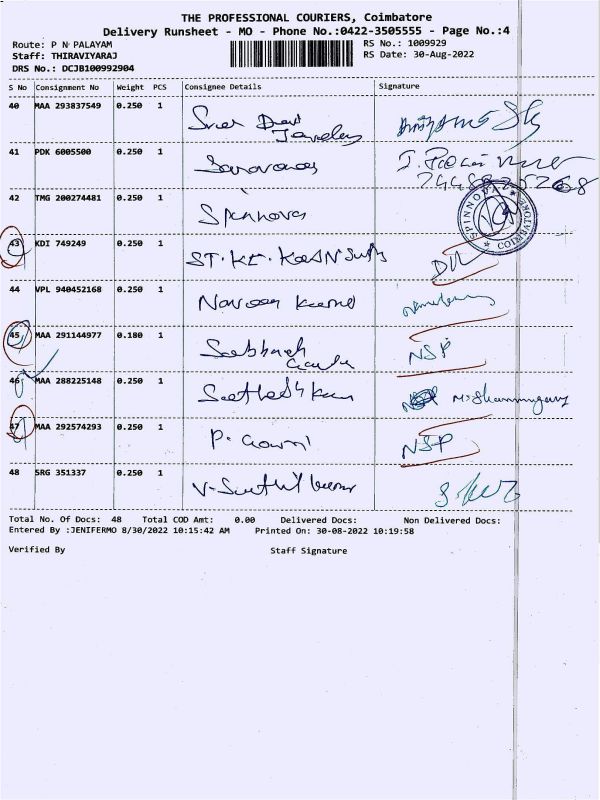 THE PROFESSIONAL COURIERS, Coimbatore
Delivery Runsheet - MO - Phone No.:0422-3505555 - Page No.:4
Route: P N PALAYAM RS No.: 1009929
Staff: THIRAVIYARAJ RS Date: 30-Aug-2022
DRS No.: DCJB100992904
S No Consignment No Weight PCS Consignee Details Signature
40 MAA 293837549 0.250 1
41 PDK 6005500 0.250 1
42 TMG 200274481 0.250 1 Spinnova
SPINNOVA COIMBATORE
43 KDI 749249 0.250 1
44 VPL 940452168 0.250 1 Naveen Kumar
45 MAA 291144977 0.180 1 NSP
46 MAA 288225148 0.250 1 M. Shanmugam
47 MAA 292574293 0.250 1 P. Gowri NSP
48 SRG 351337 0.250 1 V. Senthil kumar
Total No. Of Docs: 48 Total COD Amt: 0.00 Delivered Docs: Non Delivered Docs:
Entered By :JENIFERMO 8/30/2022 10:15:42 AM Printed On: 30-08-2022 10:19:58
Verified By Staff Signature